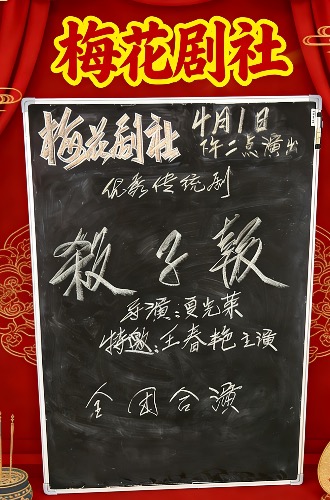 梅花剧社
梅花剧社 4月1日
下午二点演出
优秀传统剧
殺子報
导演:夏光荣
特邀:王春艳主演
全团合演